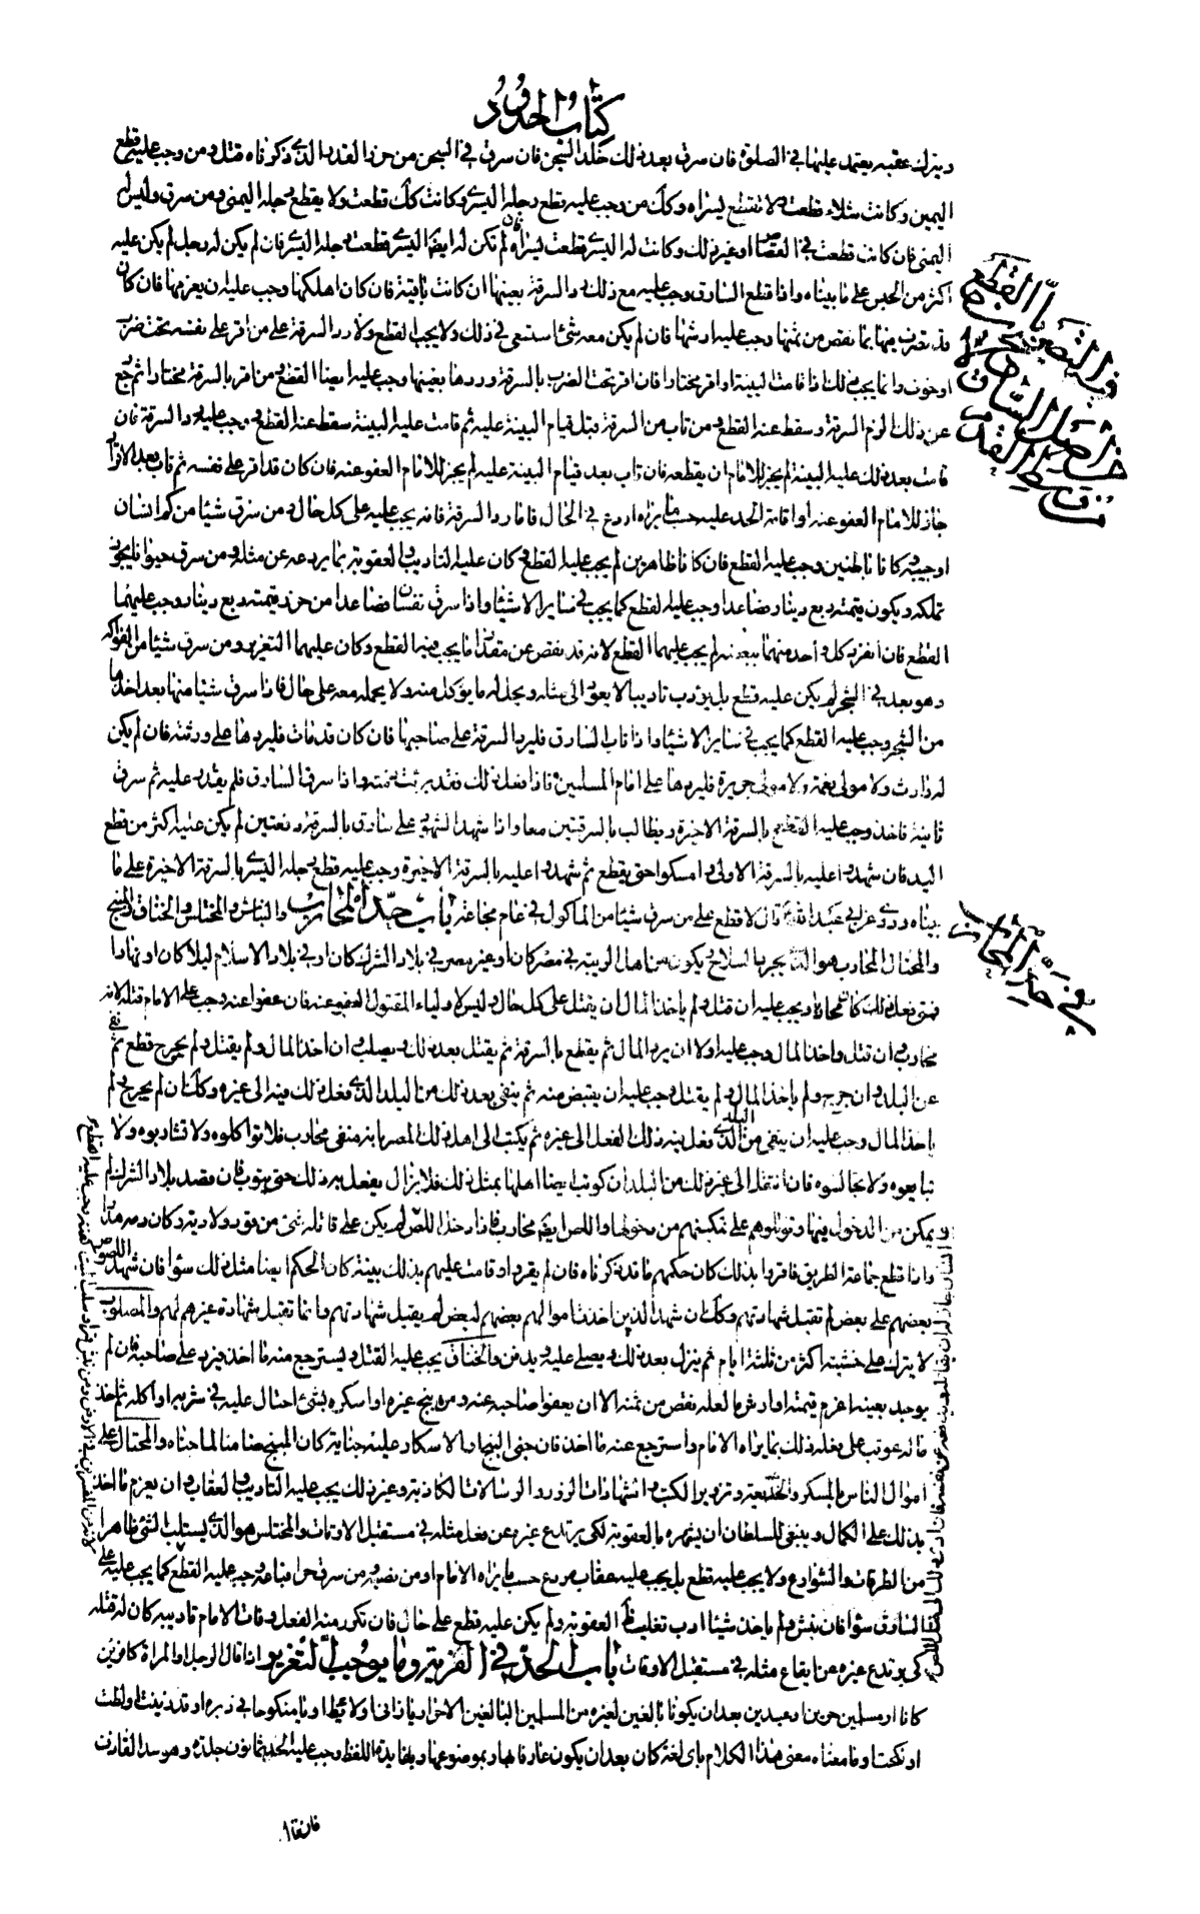 كتاب الحدود
ويترك عقبه يعتمد عليها في الصلوة فان سرق بعد ذلك خلد السجن فان سرق في السجن من حرز القدر الذي ذكرناه قتل ومن وجب عليه قطع
اليمين وكانت شلاء قطعت ولا تقطع يسراه وكك من وجب عليه قطع رجله اليسرى وكانت كك قطعت ولا يقطع رجله اليمنى ومن سرق وليس له
اليمنى فان كانت قطعت في القصاص او غير ذلك وكانت له اليسرى قطعت يسراه فان لم تكن له ايضا اليسرى قطعت رجله اليسرى فان لم يكن له رجل لم يكن عليه
اكثر من الحبس على ما بيناه واذا قطع السارق وجب عليه مع ذلك رد السرقة بعينها ان كانت باقية فان كان اهلكها وجب عليه ان يغرمها فان كان
قد تصرف فيها بما نقص من ثمنها وجب عليه ارشها فان لم يكن معه شئ استسعى في ذلك ولا يجب القطع ولا رد السرقة على من اقر على نفسه تحت ضرب
او خوف وانما يجب ذلك اذا قامت البينة او اقر مختارا فان اقر تحت الضرب بالسرقة وردها بعينها وجب عليه ايضا القطع ومن اقر بالسرقة مختارا ثم رجع
عن ذلك الزم السرقة وسقط عنه القطع ومن تاب من السرقة قبل قيام البينة عليه ثم قامت عليه البينة سقط عنه القطع ووجب عليه رد السرقة فان
قامت بعد ذلك عليه البينة لم يجز للامام ان يقطعه فان تاب بعد قيام البينة عليه لم يجز للامام العفو عنه فان كان قد اقر على نفسه ثم تاب بعد الاقرار
جاز للامام العفو عنه او اقامة الحد عليه حسب ما يراه اردع في الحال فاما رد السرقة فانه يجب عليه على كل حال ومن سرق شيئا من كم انسان
او جيبه وكانا باطنين وجب عليه القطع فان كانا ظاهرين لم يجب عليه القطع وكان عليه التاديب والعقوبة بما يردعه عن مثله ومن سرق حيوانا يجوز
تملكه ويكون قيمته ربع دينار فصاعدا وجب عليه القطع كما يجب في سائر الاشياء واذا سرق نفسان فصاعدا من حرز قيمته ربع دينار وجب عليهما
القطع فان انفرد كل واحد منهما ببعضه لم يجب عليهما القطع لانه قد نقص عن مقدار ما يجب فيه القطع وكان عليهما التعزير ومن سرق شيئا من الفواكه
وهو بعد في الشجر لم يكن عليه قطع بل يؤدب تاديبا لا يعود الى مثله ويحل له ما يؤكل منه ولا يحمله معه على حال فاذا سرق شيئا منها بعد اخذها
من الشجر وجب عليه القطع كما يجب في سائر الاشياء واذا تاب السارق فليرد السرقة على صاحبها فان كان قد مات فليردها على ورثته فان لم يكن
له وارث ولا مولى نعمة ولا مولى جريرة فليردها على امام المسلمين فاذا فعل ذلك فقد برئت ذمته واذا سرق السارق فلم يقدر عليه ثم سرق
ثانية فاخذ وجب عليه القطع بالسرقة الاخيرة ويطالب بالسرقتين معا واذا شهد الشهود على سارق بالسرقة دفعتين لم يكن عليه اكثر من قطع
اليد فان شهدوا عليه بالسرقة الاولى وامسكوا حتى يقطع ثم شهدوا عليه بالسرقة الاخيرة وجب عليه قطع رجله اليسرى بالسرقة الاخيرة على ما
بيناه وروى عن ابي عبد الله قال لا قطع على من سرق شيئا من الماكول في عام مجاعة باب حد المحارب والنباش والمختلس والخناق والمبنج
والمحتال المحارب هو الذي يجرد السلاح ويكون من اهل الريبة في مصر كان او غير مصر في بلاد الشرك كان او في بلاد الاسلام ليلا كان او نهارا
فمتى فعل ذلك كان محاربا ويجب عليه ان قتل ولم ياخذ المال ان يقتل على كل حال وليس لاولياء المقتول العفو عنه فان عفوا عنه وجب على الامام قتله لانه
محارب وان قتل واخذ المال وجب عليه اولا ان يرد المال ثم يقطع بالسرقة ثم يقتل بعد ذلك ويصلب وان اخذ المال ولم يقتل ولم يجرح قطع ثم نفي
عن البلد وان جرح ولم ياخذ المال ولم يقتل وجب عليه ان يقتص منه ثم ينفى بعد ذلك من البلد الذي فعل ذلك فيه الى غيره وكك ان لم يجرح ولم
ياخذ المال وجب عليه ان ينفى من البلد الذي فعل فيه ذلك الفعل الى غيره ثم يكتب الى اهل ذلك المصر بانه منفي محارب فلا تواكلوه ولا تشاربوه ولا
تبايعوه ولا تجالسوه فان انتقل الى غير ذلك من البلدان كوتب ايضا اهلها بمثل ذلك فلا يزال يفعل به ذلك حتى يتوب فان قصد بلاد الشرك لم
يمكن من الدخول فيها وقوتلوا هم على تمكينهم من دخولها واللص ايضا محارب فاذا دخل اللص لم يكن على قاتله شئ من قود ولا دية وكان دمه هدرا
واذا قطع جماعة الطريق فاقروا بذلك كان حكمهم ما قد ذكرناه فان لم يقروا وقامت عليهم بذلك بينة كان الحكم ايضا مثل ذلك سواء فان شهد اللصوص
بعضهم على بعض لم تقبل شهادتهم وكك ان شهد الذين اخذت اموالهم بعضهم لبعض لم يقبل شهادتهم وانما تقبل شهادة غيرهم لهم والمصلوب
لا يترك على خشبته اكثر من ثلثة ايام ثم ينزل بعد ذلك ويصلى عليه ويدفن والخناق يجب عليه القتل ويسترجع منه ما اخذ فيرد على صاحبه فان لم
يوجد بعينه اغرم قيمته او ارش ما لعله نقص من ثمنه الا ان يعفو صاحبه عنه ومن بنج غيره او اسكره بشئ احتال عليه في شربه او اكله ثم اخذ
ماله عوقب على فعله ذلك بما يراه الامام واسترجع عنه ما اخذ فان جنى البنج او الاسكار عليه جناية كان المبنج ضامنا لما جناه والمحتال على
اموال الناس بالمكر والخديعة وتزوير الكتب والشهادات الزور والرسالات الكاذبة وغير ذلك يجب عليه التاديب والعقاب وان يغرم ما اخذ
بذلك على الكمال وينبغي للسلطان ان يشهره بالعقوبة لكي يرتدع غيره عن فعل مثله في مستقبل الاوقات والمختلس هو الذي يستلب الشئ ظاهرا
من الطرقات والشوارع ولا يجب عليه قطع بل يجب عليه عقاب مردع حسب ما يراه الامام او من نصبه ومن سرق حرا فباعه وجب عليه القطع كما يجب عليه على
السارق سواء فان نبش ولم ياخذ شيئا ادب تغليظ العقوبة ولم يكن عليه قطع على حال فان تكرر منه الفعل وفات الامام تاديبه كان له قتله
كي يرتدع غيره من ايقاع مثله في مستقبل الاوقات باب الحد في الفرية وما يوجب التعزير اذا قال الرجل او المراة كافرين
كانا او مسلمين حرين او عبدين بعد ان يكونا بالغين لغيره من المسلمين البالغين الاحرار يا زاني او لائط او يا منكوحا في دبره او قد زنيت او لطت
او نكحت او ما معناه معنى هذا الكلام باي لغة كان بعد ان يكون عارفا بها وبموضوعها وبفايدة اللفظ وجب عليه الحد ثمانون جلدة وهو حد القاذف
فان قا
في حد المحارب